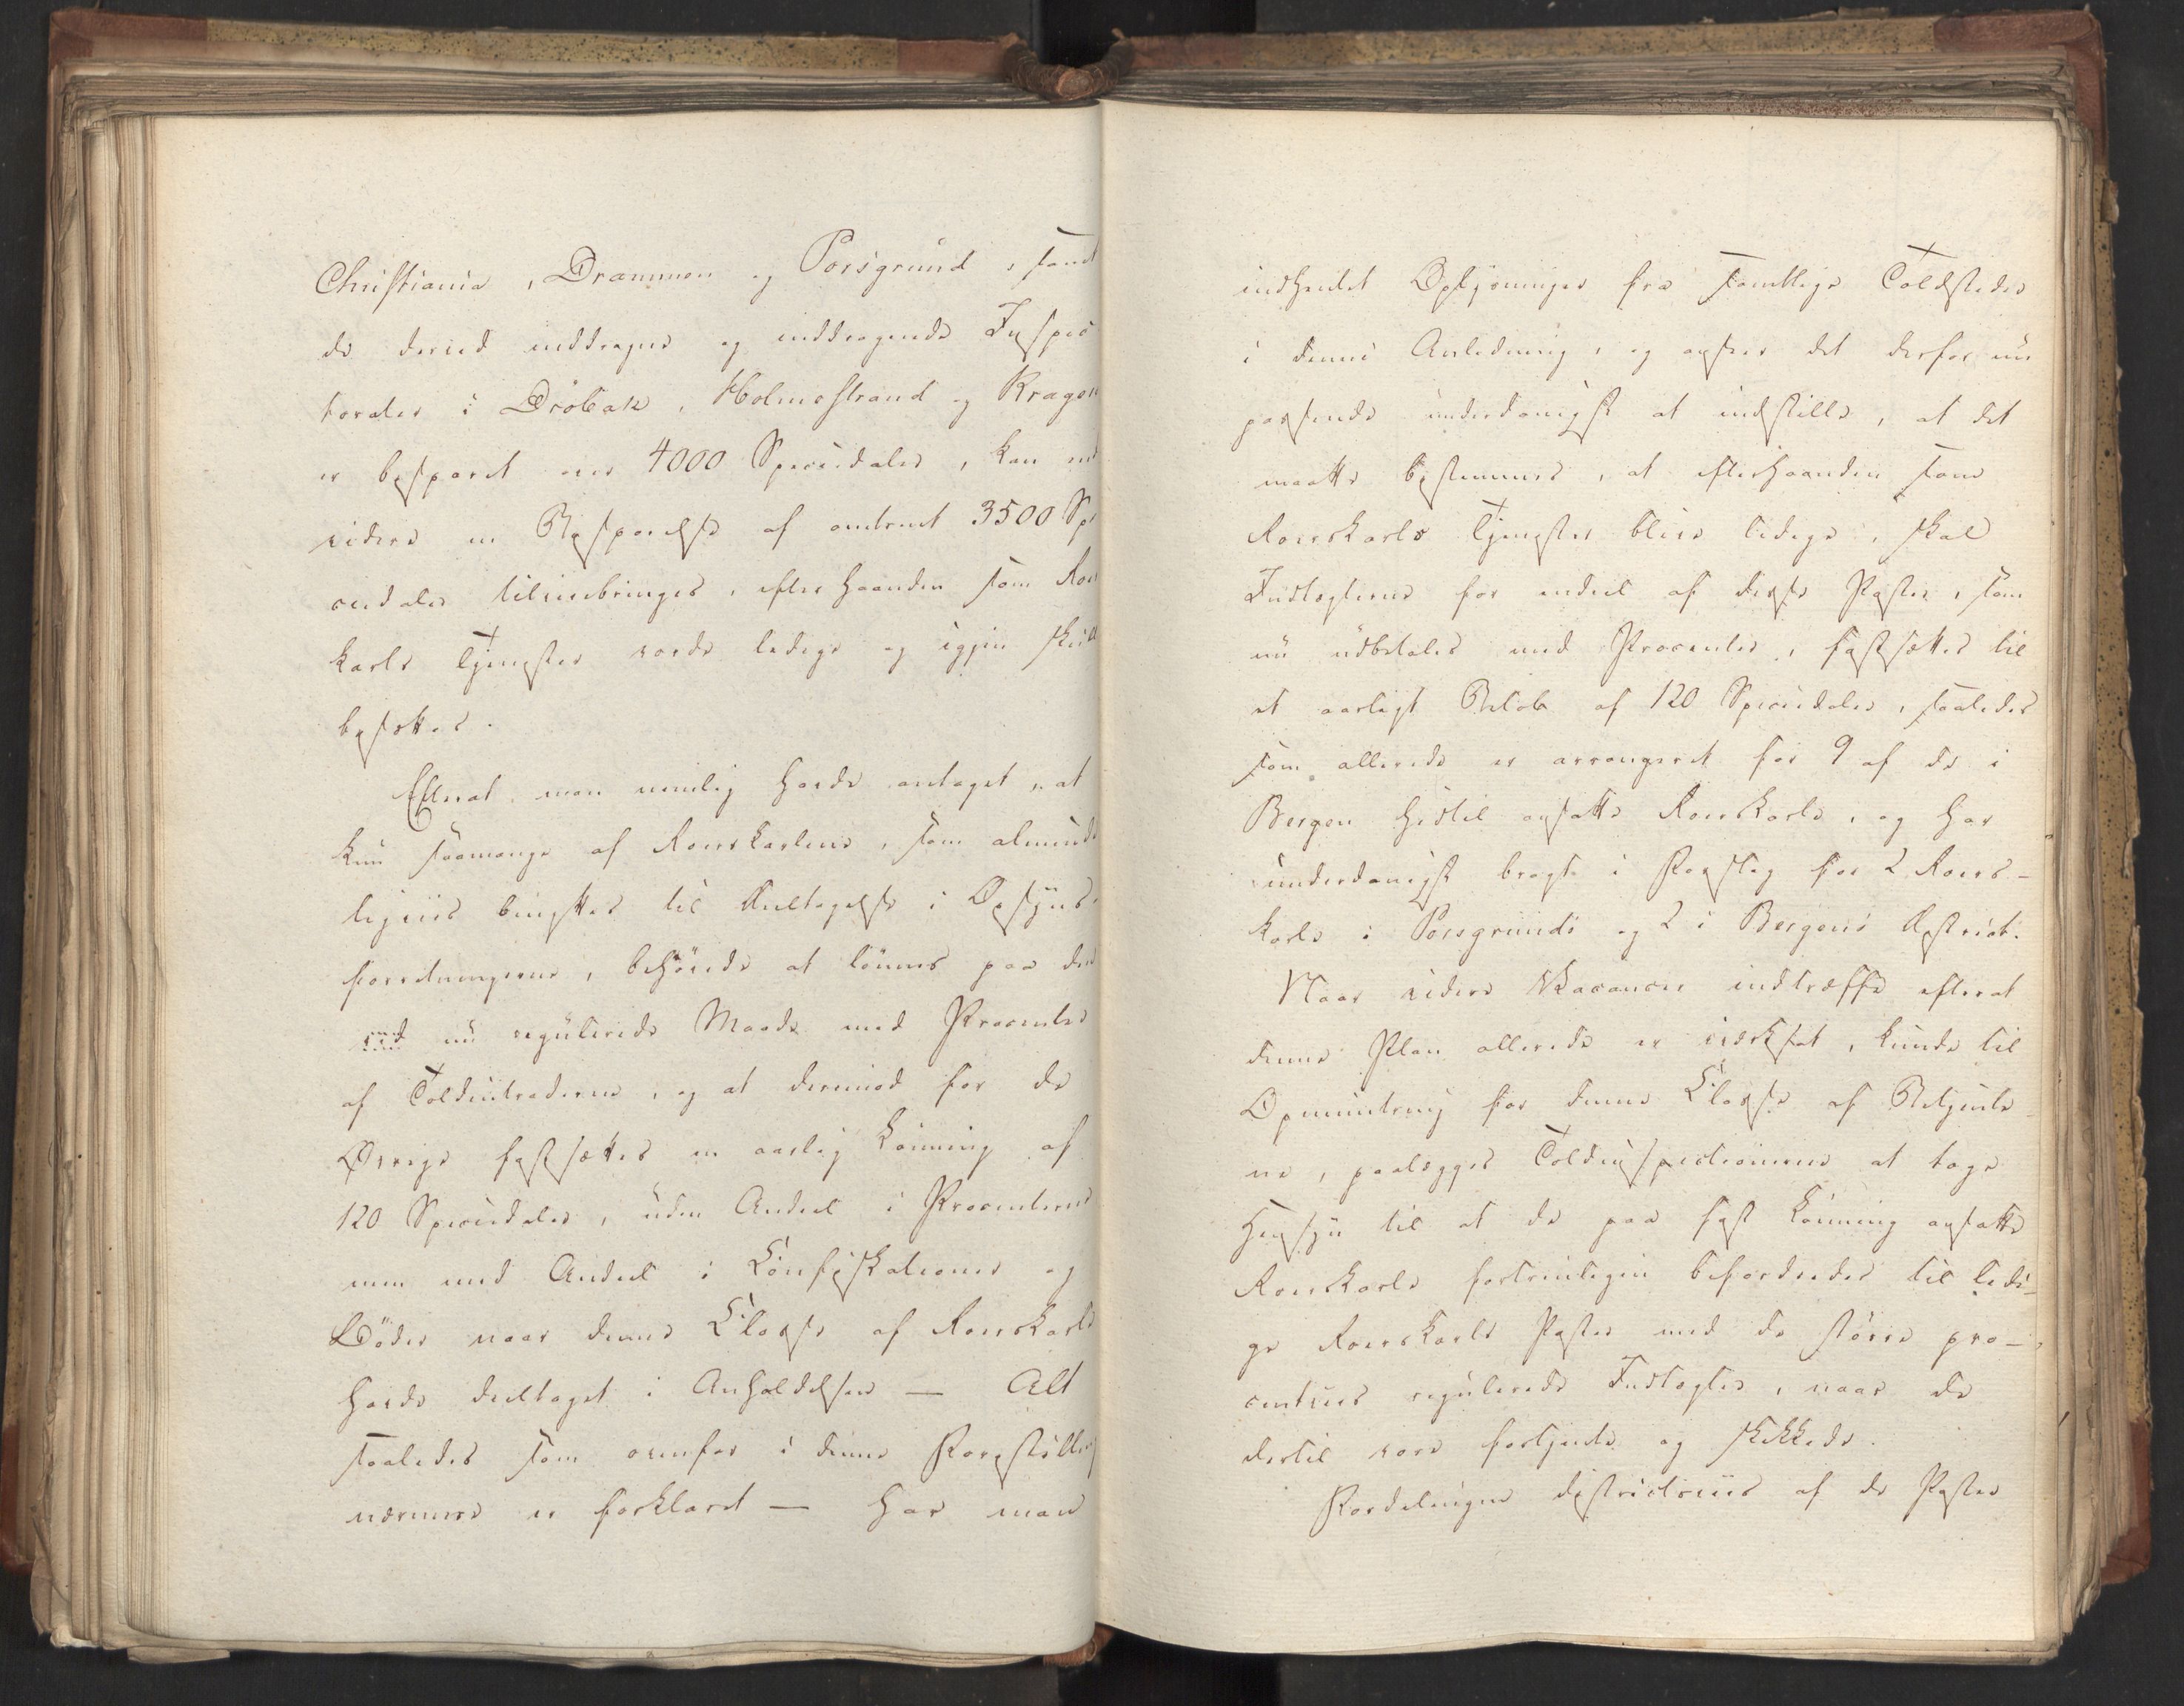 Christiania, Drammen og Porsgrund, samt
de derved inddragne og inddragende Inspec
torater i Dröbak, Holmestrand og Krager
er besparet over 4000 Speciedaler, kan end
videre en Besparelse af omtrent 3500 Spe
ciedaler tilveiebringes, efter haanden som Roers
karls Tjenester vorde ledige og igjen skulle
besættes.
Efterat man nemlig havde antaget, at
kun saamange af Roerskarlene, som alminde
ligviis benyttes til Deeltagelse i Opsyns-
forretningerne, behövede at lönnes paa den
ved nu regulerede Maade med Procenter
af Toldintraderne, og at derimod for de
Övrige fastsættes en aarlig Lönning af
120 Speciedaler, uden Andeel i Procenterne
men med Andeel i Confiskationer og
Böder naar denne Classe af Roerskarle
havde deeltaget i Anholdelsen — Alt
saaledes som ovenfor i denne Forestilling
nærmere er forklaret — har man
indhentet Oplysninger fra samtlige Toldsteder
i denne Anledning, og anseer det derfor nu
passende underdanigst at indstille, at det
maatte bestemmes, at efterhaanden som
Roerskarls Tjenester blive ledige, skal
Indtægterne for endeel af disse Poster, som
nu udbetales med Procenter, fastsættes til
et aarligt Belöb af 120 Speciedaler, saaledes
som allerede er arrangeret for 9 af de i
Bergen hidtil ansatte Roerskarle, og har
underdanigst bragt i Forslag for 2 Roers-
karle i Porsgrunds og 2 i Bergens District.
Naar videre Vacancer indtræffe efterat
denne Plan allerede er iværksat, kunde til
Opmuntring for denne Classe af Betjente
ne, paalægges Toldinspectionerne at tage
Hensyn til at de paa fast Lönning ansatte
Roerskarle fortrinligen befordredes til ledi-
ge Roerskarls Poster med de större pro-
centviis regulerede Indtægter, naar de
dertil vare fortjente og skikkede.
Fordelingen districtsviis af de Poster